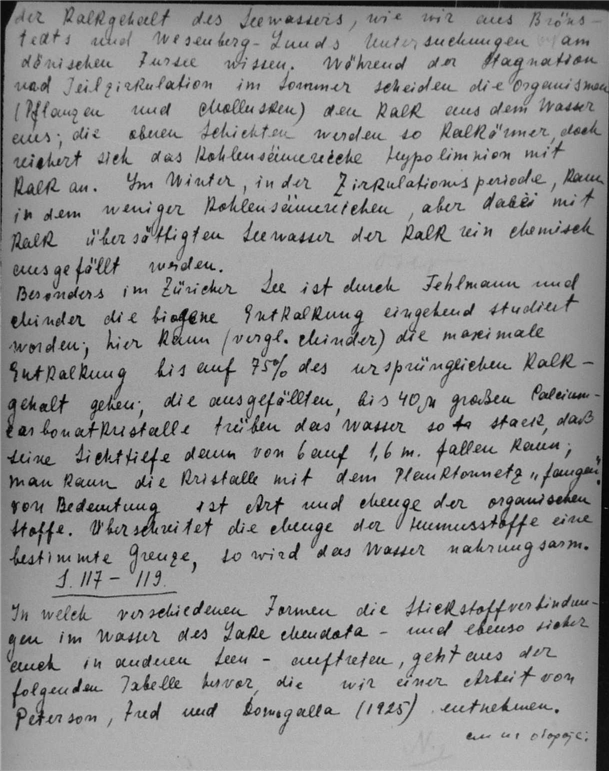 der Kalkgehalt des Seewassers, wie wir aus Bröns-
tedts und Wesenberg-Lunds Untersuchungen am
dänischen Fursee wissen. Während der Stagnation
und Teilzirkulation im Sommer scheiden die Organismen
(Pflanzen und Mollusken) den Kalk aus dem Wasser
aus; die oberen Schichten werden so Kalkärmer, doch
reichert sich das Kohlensäurereiche Hypolimnion mit
Kalk an. Im Winter, in der Zirkulationsperiode, kann
in dem weniger Kohlensäurereichen, aber dabei mit
Kalk übersättigten Seewasser der Kalk rein chemisch
ausgefällt werden.
Besonders im Züricher See ist durch Fehlmann und
Minder die biogene Entkalkung eingehend studiert
worden; hier kann (vergl. Minder) die maximale
Entkalkung bis auf 75% des ursprünglichen Kalk-
gehalt gehen; die ausgefällten, bis 40 µ großen Calcium-
carbonatkristalle trüben das Wasser so stark, daß
seine Sichttiefe dann von 6 auf 1,6 m. fallen kann;
man kann die Kristalle mit dem Planktonnetz „fangen".
von Bedeutung ist Art und Menge der organischen
Stoffe. Überschreitet die Menge der Humusstoffe eine
bestimmte Grenze, so wird das Wasser nahrungsarm.
S. 117 - 119.
In welch verschiedenen Formen die Stickstoffverbindun-
gen im Wasser des Lake Mendota - und ebenso sicher
auch in anderen Seen - auftreten, geht aus der
folgenden Tabelle hervor, die wir einer Arbeit von
Peterson, Fred und Domogalla (1925) entnehmen.
см на обороте: